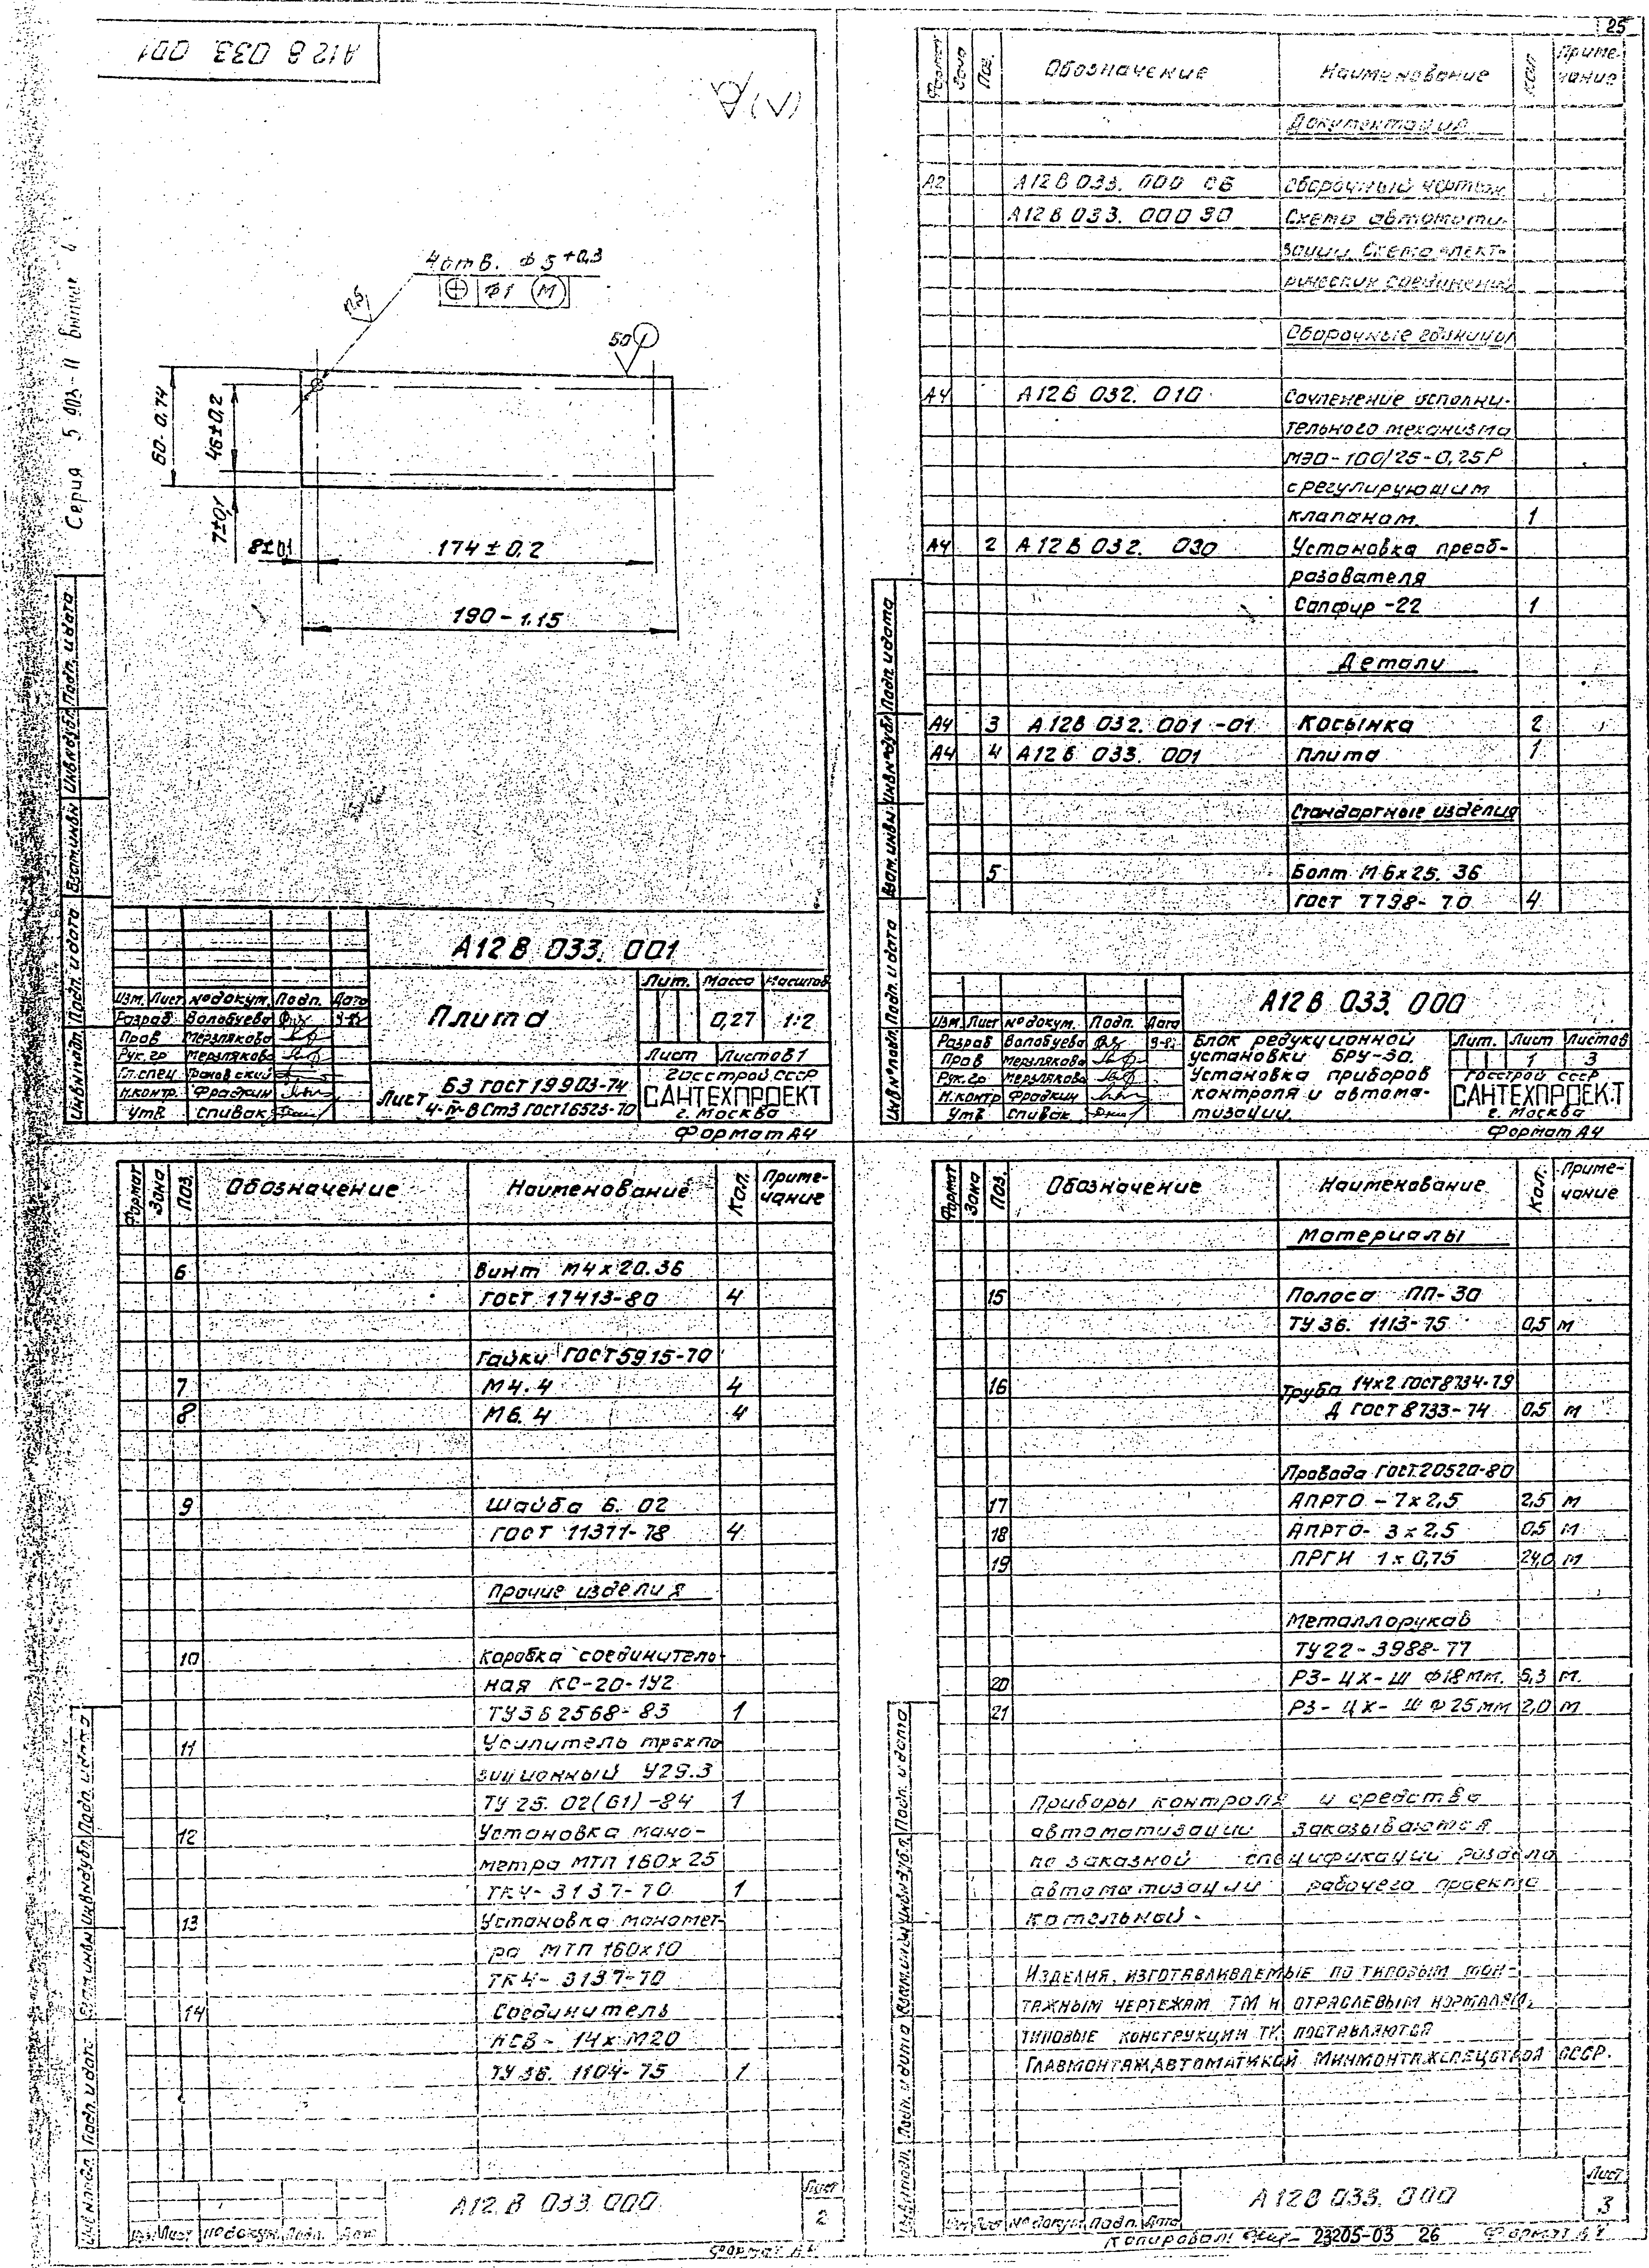 А12В 033. 001
Серия 5 903-11 выпуск 4
4 отв. Ф5 +0,3
Ф1 М
12,5
50
60-0,74
46±0,2
7±0,1
8±0,1
174±0,2
190-1,15
Инв№подл. Подп. и дата Взам.инв№ Инв№дубл. Подп. и дата
А12В 033. 001
Изм. Лист №докум. Подп. Дата
Разраб Волобуева
Пров Мерзлякова
Рук.гр Мерзлякова
Гл.спец
Н.контр. Фрадкин
Утв Спивак
Плита
Лит. Масса Масштаб
0,27 1:2
Лист Листов 1
Лист Б3 ГОСТ 19903-74
4-IV-ВСт3 ГОСТ 16523-70
Госстрой СССР
САНТЕХПРОЕКТ
г. Москва
Формат А4
25
Формат Зона Поз. Обозначение Наименование Кол Примечание
Документация
А2 А12В 033. 000 СБ Сборочный чертеж
А12В 033. 000 ЭО Схема автомати-
зации Схема элект-
рических соединений
Сборочные единицы
А4 А12В 032. 010 Сочленение исполни-
тельного механизма
МЭО-100/25-0,25Р
с регулирующим
клапаном 1
А4 2 А12В 032. 030 Установка преоб-
разователя
Сапфир-22 1
Детали
А4 3 А12В 032. 001-01 Косынка 2
А4 4 А12В 033. 001 Плита 1
Стандартные изделия
5 Болт М6х25. 36
ГОСТ 7798-70 4
Инв№подл. Подп. и дата Взам.инв№ Инв№дубл. Подп. и дата
А12В 033. 000
Изм. Лист №докум. Подп. Дата
Разраб Волобуева
Пров Мерзлякова
Рук.гр Мерзлякова
Н.контр Фрадкин
Утв Спивак
Блок редукционной
установки БРУ-30.
Установка приборов
контроля и автома-
тизации.
Лит. Лист Листов
1 3
Госстрой СССР
САНТЕХПРОЕКТ
г. Москва
Формат А4
Формат Зона Поз. Обозначение Наименование Кол. Приме-
чание
6 Винт М4х20.36
ГОСТ 17413-80 4
Гайки ГОСТ 5915-70
7 М4. 4 4
8 М6. 4 4
9 Шайба 6. 02
ГОСТ 11371-78 4
Прочие изделия
10 Коробка соединитель-
ная КС-20-1У2
ТУ36 2568-83 1
11 Усилитель трехпо
зиционный У29.3
ТУ 25. 02(61)-84 1
12 Установка мано-
метра МТП 160х25
ТК4-3137-70 1
13 Установка маномет-
ра МТП 160х10
ТК4-3137-70
14 Соединитель
НСВ-14хМ20
ТУ 36. 1104-75 1
Инв№подл. Подп. и дата Взам.инв№ Инв№дубл. Подп. и дата
Изм Лист №докум. Подп. Дата
А12 В 033. 000
Лист
2
Формат А4
Формат Зона Поз. Обозначение Наименование Кол. Приме-
чание
Материалы
15 Полоса ПП-30
ТУ 36. 1113-75 0,5 м
16 Труба 14х2 ГОСТ 8734-79
Д ГОСТ 8733-74 0,5 м
Провода ГОСТ.20520-80
17 АПРТО-7х2,5 2,5 м
18 АПРТО-3х2,5 0,5 м
19 ПРГИ 1х0,75 24,0 м
Металлорукав
ТУ22-3988-77
20 РЗ-ЦХ-Ш Ф18мм. 5,3 м.
21 РЗ-ЦХ-Ш Ф25мм 2,0 м
Приборы контроля и средства
автоматизации заказываются
по заказной спецификации раздела
автоматизации рабочего проекта
котельной.
Изделия, изготавливаемые по типовым мон-
тажным чертежам ТМ и отраслевым нормалям,
типовые конструкции ТК поставляются
Главмонтажавтоматикой Минмонтажспецстроя СССР.
Инв№подл. Подп. и дата Взам.инв№ Инв№дубл. Подп. и дата
Изм Лист №докум. Подп. Дата
А12В 033. 000
Лист
3
Копировал: 23205-03 26 Формат А4